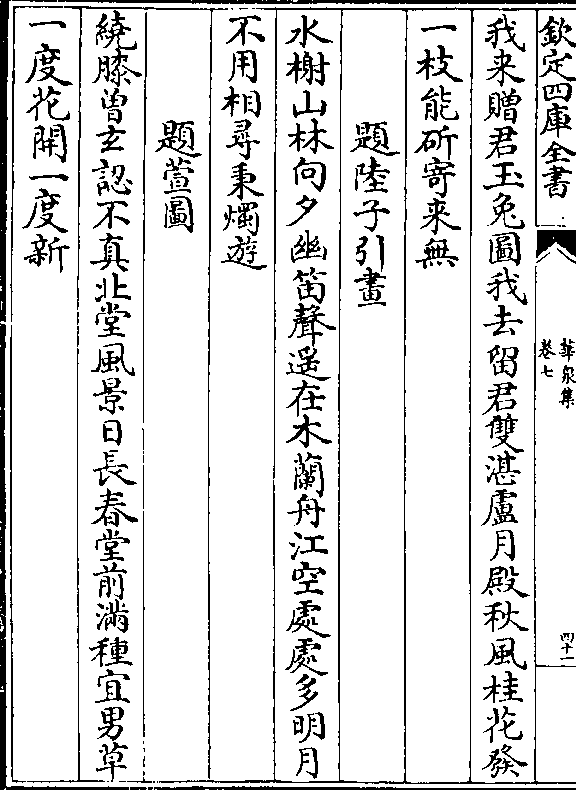 欽定四庫全書
華泉集
卷七
四十一
我来贈君玉兔圖我去留君雙湛盧月殿秋風桂花發
一枝能斫寄来無
題陸子引畫
水榭山林向夕幽笛聲遥在木蘭舟江空處處多明月
不用相尋秉燭遊
題萱圖
繞膝曽玄認不真北堂風景日長春堂前滿種宜男草
一度花開一度新